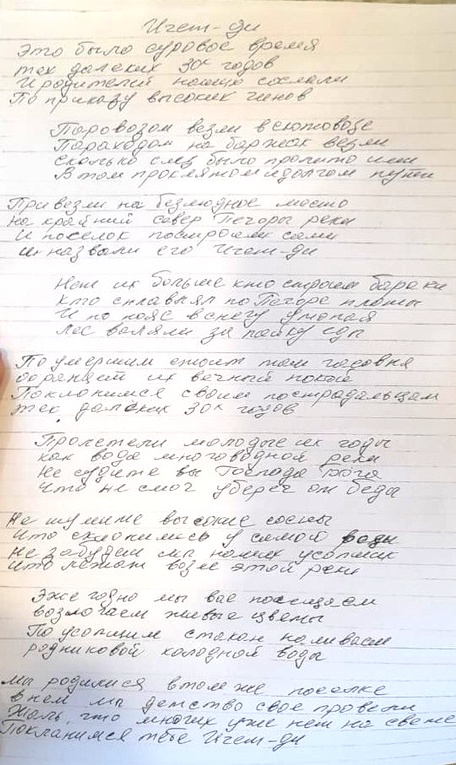 Ичет-ди
Это было суровое время
тех далеких 30х годов
И родителей наших сослали
По приказу высоких чинов
Паровозом везли в
Пароходом на баржах везли
Сколько слез было пролито ими
В том проклятом и долгом пути
Привезли на безлюдное место
на крайний север Печоры реки
И поселок построили сами
И назвали его Ичет-ди
Нет их больше кто строил бараки
кто сплавлял по Печоре плоты
И по пояс в снегу утопая
лес валяли за пайку еды
По умершим стоит там часовня
охраняет их вечный покой
Поклонимся своим пострадальцам
тех далеких 30х годов
Пролетели молодые их годы
как вода многоводной реки
Не судите вы Господа Бога
Что не смог уберег от беды
Не шумите высокие сосны
что склонились у самой воды
Не забудем мы наших усопших
что лежат возле этой реки
Эжегодно мы вас посещаем
возлогаем живые цветы
По усопшим стакан наливаем
родниковой холодной воды
Мы родились в том же поселке
в нем мы детство свое провели
Жаль, что многих уже нет на свете
Покланимся тебе Ичет-ди